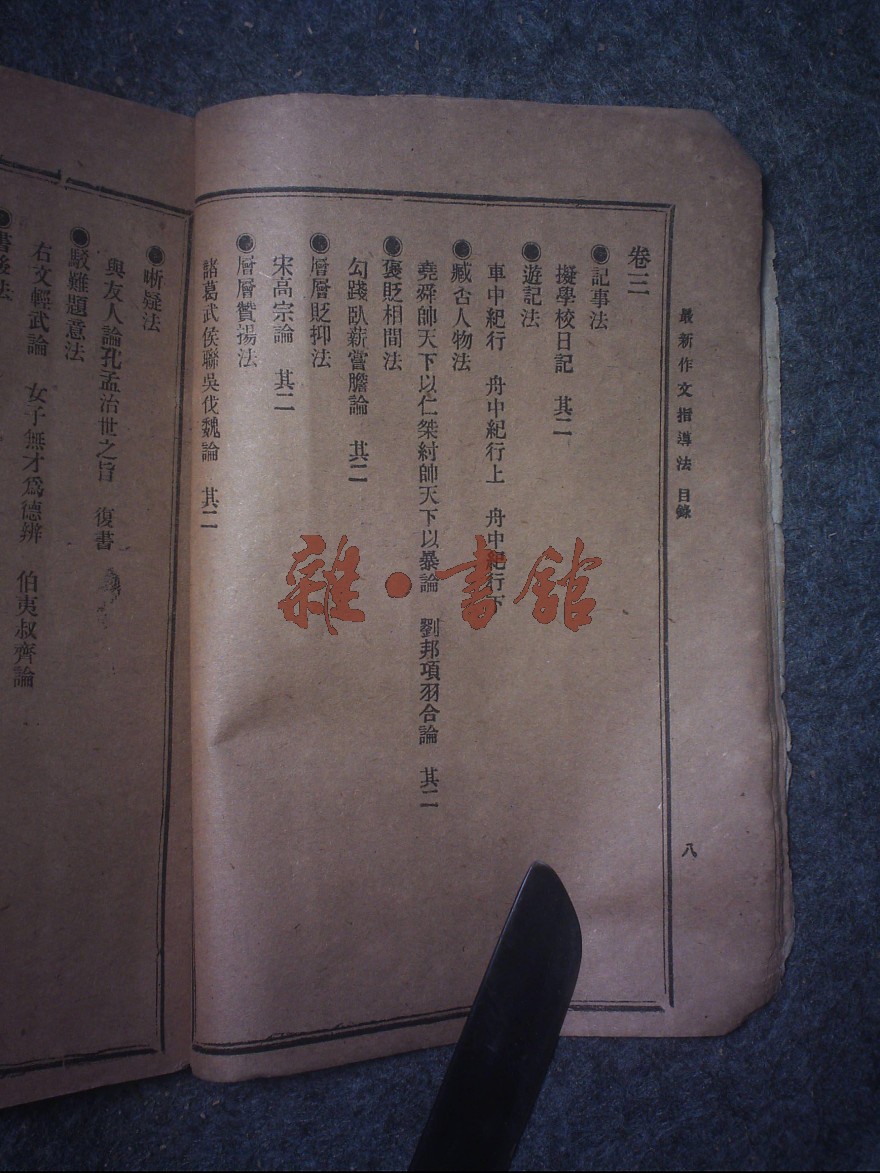 最新作文指導法 目錄
八
卷三
●記事法
擬學校日記 其二
●遊記法
車中紀行 舟中紀行上 舟中紀行下
●臧否人物法
堯舜帥天下以仁桀紂帥天下以暴論 劉邦項羽合論 其二
●褒貶相間法
勾踐臥薪嘗膽論 其二
●層層貶抑法
宋高宗論 其二
●層層贊揚法
諸葛武侯聯吳伐魏論 其二
●晰疑法
與友人論孔孟治世之旨 復書
●駁難題意法
右文輕武論 女子無才爲德辨 伯夷叔齊論
●書後法
雜·書館